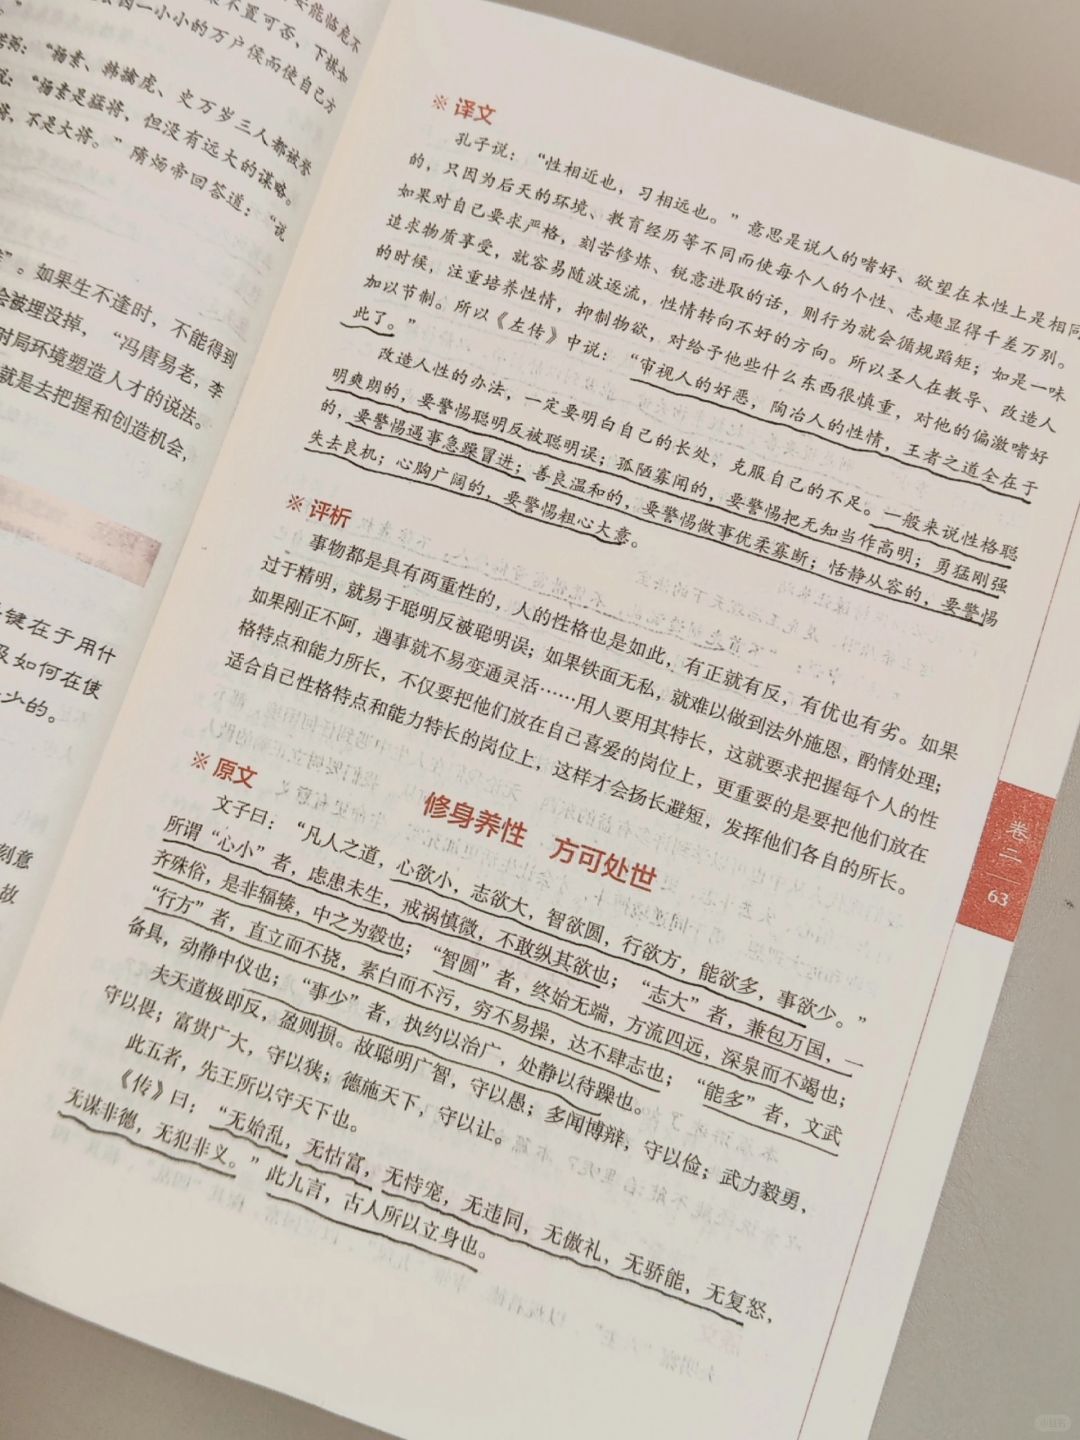 安能临危不
不置可否，下棋如
因一小小的万户侯而使自己方
若弼：“杨素、韩擒虎、史万岁三人都被誉
说：“杨素是猛将，但没有远大的谋略。
将，不是大将。”隋炀帝回答道：“说
”。如果生不逢时，不能得到
会被埋没掉，“冯唐易老，李
时局环境塑造人才的说法。
就是去把握和创造机会，
键在于用什
及如何在使
少的。
刻意
故
※ 译文
孔子说：“性相近也，习相远也。”意思是说人的嗜好、欲望在本性上是相同
的，只因为后天的环境、教育经历等不同而使每个人的个性、志趣显得千差万别。
如果对自己要求严格，刻苦修炼、锐意进取的话，则行为就会循规蹈矩；如是一味
追求物质享受，就容易随波逐流，性情转向不好的方向。所以圣人在教导、改造人
的时候，注重培养性情，抑制物欲，对给予他些什么东西很慎重，对他的偏激嗜好
加以节制。所以《左传》中说：“审视人的好恶，陶冶人的性情，王者之道全在于
此了。”
改造人性的办法，一定要明白自己的长处，克服自己的不足。一般来说性格聪
明爽朗的，要警惕聪明反被聪明误；孤陋寡闻的，要警惕把无知当作高明；勇猛刚强
的，要警惕遇事急躁冒进；善良温和的，要警惕做事优柔寡断；恬静从容的，要警惕
失去良机；心胸广阔的，要警惕粗心大意。
※ 评析
事物都是具有两重性的，人的性格也是如此，有正就有反，有优也有劣。如果
过于精明，就易于聪明反被聪明误；如果铁面无私，就难以做到法外施恩，酌情处理；
如果刚正不阿，遇事就不易变通灵活……用人要用其特长，这就要求把握每个人的性
格特点和能力所长，不仅要把他们放在自己喜爱的岗位上，更重要的是要把他们放在
适合自己性格特点和能力特长的岗位上，这样才会扬长避短，发挥他们各自的所长。
修身养性 方可处世
※ 原文
文子曰：“凡人之道，心欲小，志欲大，智欲圆，行欲方，能欲多，事欲少。”
所谓“心小”者，虑患未生，戒祸慎微，不敢纵其欲也；“志大”者，兼包万国，一
齐殊俗，是非辐辏，中之为毂也；“智圆”者，终始无端，方流四远，深泉而不竭也；
“行方”者，直立而不挠，素白而不污，穷不易操，达不肆志也；“能多”者，文武
备具，动静中仪也；“事少”者，执约以治广，处静以待躁也。
夫天道极即反，盈则损。故聪明广智，守以愚；多闻博辩，守以俭；武力毅勇，
守以畏；富贵广大，守以狭；德施天下，守以让。
此五者，先王所以守天下也。
《传》曰：“无始乱，无怙富，无恃宠，无违同，无傲礼，无骄能，无复怒，
无谋非德，无犯非义。”此九言，古人所以立身也。
卷二
63